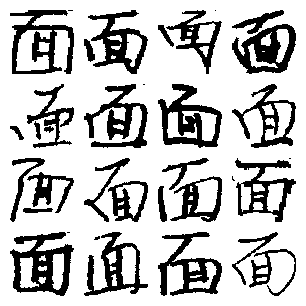 面面面面
面面面面
面面面面
面面面面